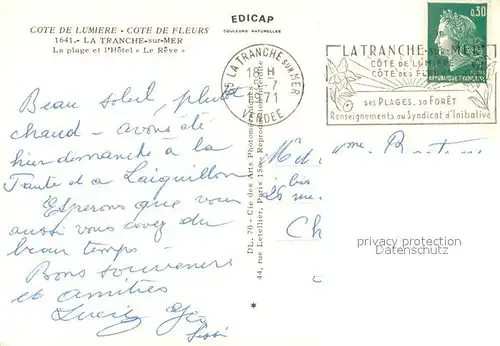 COTE DE LUMIERE - COTE DE FLEURS
1641.- LA TRANCHE-sur-MER
La plage et l'Hôtel « Le Rêve »
EDICAP
COULEURS NATURELLES
Beau soleil, plutôt
chaud - avons été
hier dimanche à la
Faute et a l'aiguillon
Esperons que vous
aussi vous avez du
beau temps -
Bons souvenirs
et amitiés
DL. 70 - Cie des Arts Photomécaniques
44, rue Letellier, Paris 15e - Reproduction interdite
85 LA TRANCHE SUR MER
18 H
-7
1971
VENDEE
LA TRANCHE-sur-MER
CÔTE DE LUMIÈRE
CÔTE DES FLEURS
ses PLAGES. sa FORÊT
Renseignements au Syndicat d'Initiative
0,30
REPUBLIQUE FRANÇAISE
bis
Ch
privacy protection
Datenschutz
*